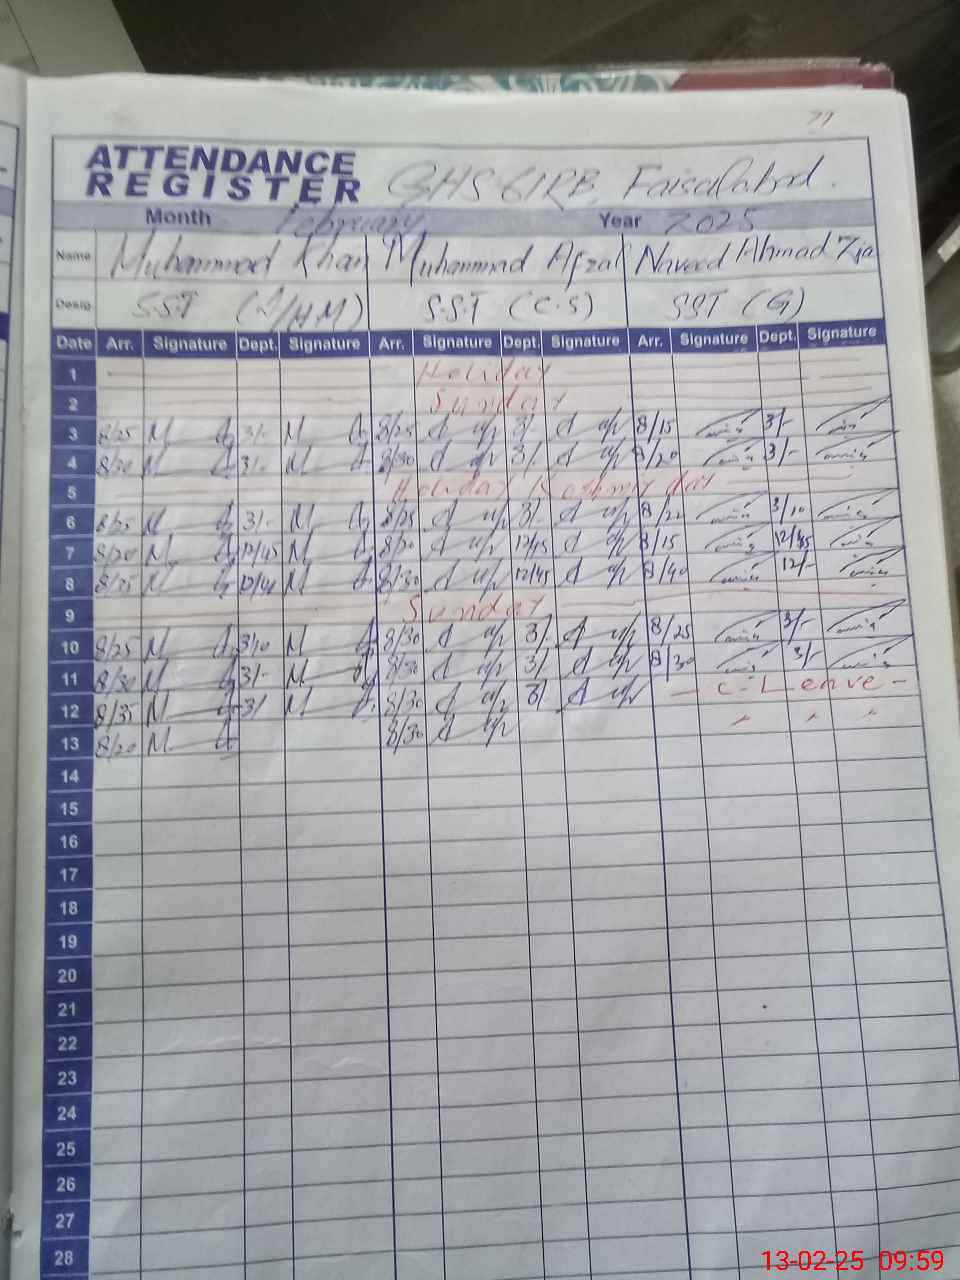 77
ATTENDANCE REGISTER GHS 61RB, Faisalabad.
Month February Year 2025
Name Muhammad Khan Muhammad Afzal Naveed Ahmad Zia
Desig. S.ST ( /H.M) S.S.T (C.S) SST (G)
Date Arr. Signature Dept. Signature Arr. Signature Dept. Signature Arr. Signature Dept. Signature
1 Holiday
2 Sunday
3 8/25 3/- 8/25 3/- 8/15 3/-
4 8/30 3/- 8/30 3/- 8/20 3/-
5 Holiday Kashmir day
6 8/25 3/- 8/25 3/- 8/22 3/10
7 8/20 12/45 8/20 12/45 8/15 12/45
8 8/35 8/30 12/45 8/40 12/-
9 Sunday
10 8/25 3/10 8/30 3/- 8/25 3/-
11 8/30 3/- 8/30 3/- 8/30 3/-
12 8/35 3/- 8/30 3/- - C. Leave -
13 8/20 8/30 " " "
14
15
16
17
18
19
20
21
22
23
24
25
26
27
28
13-02-25 09:59